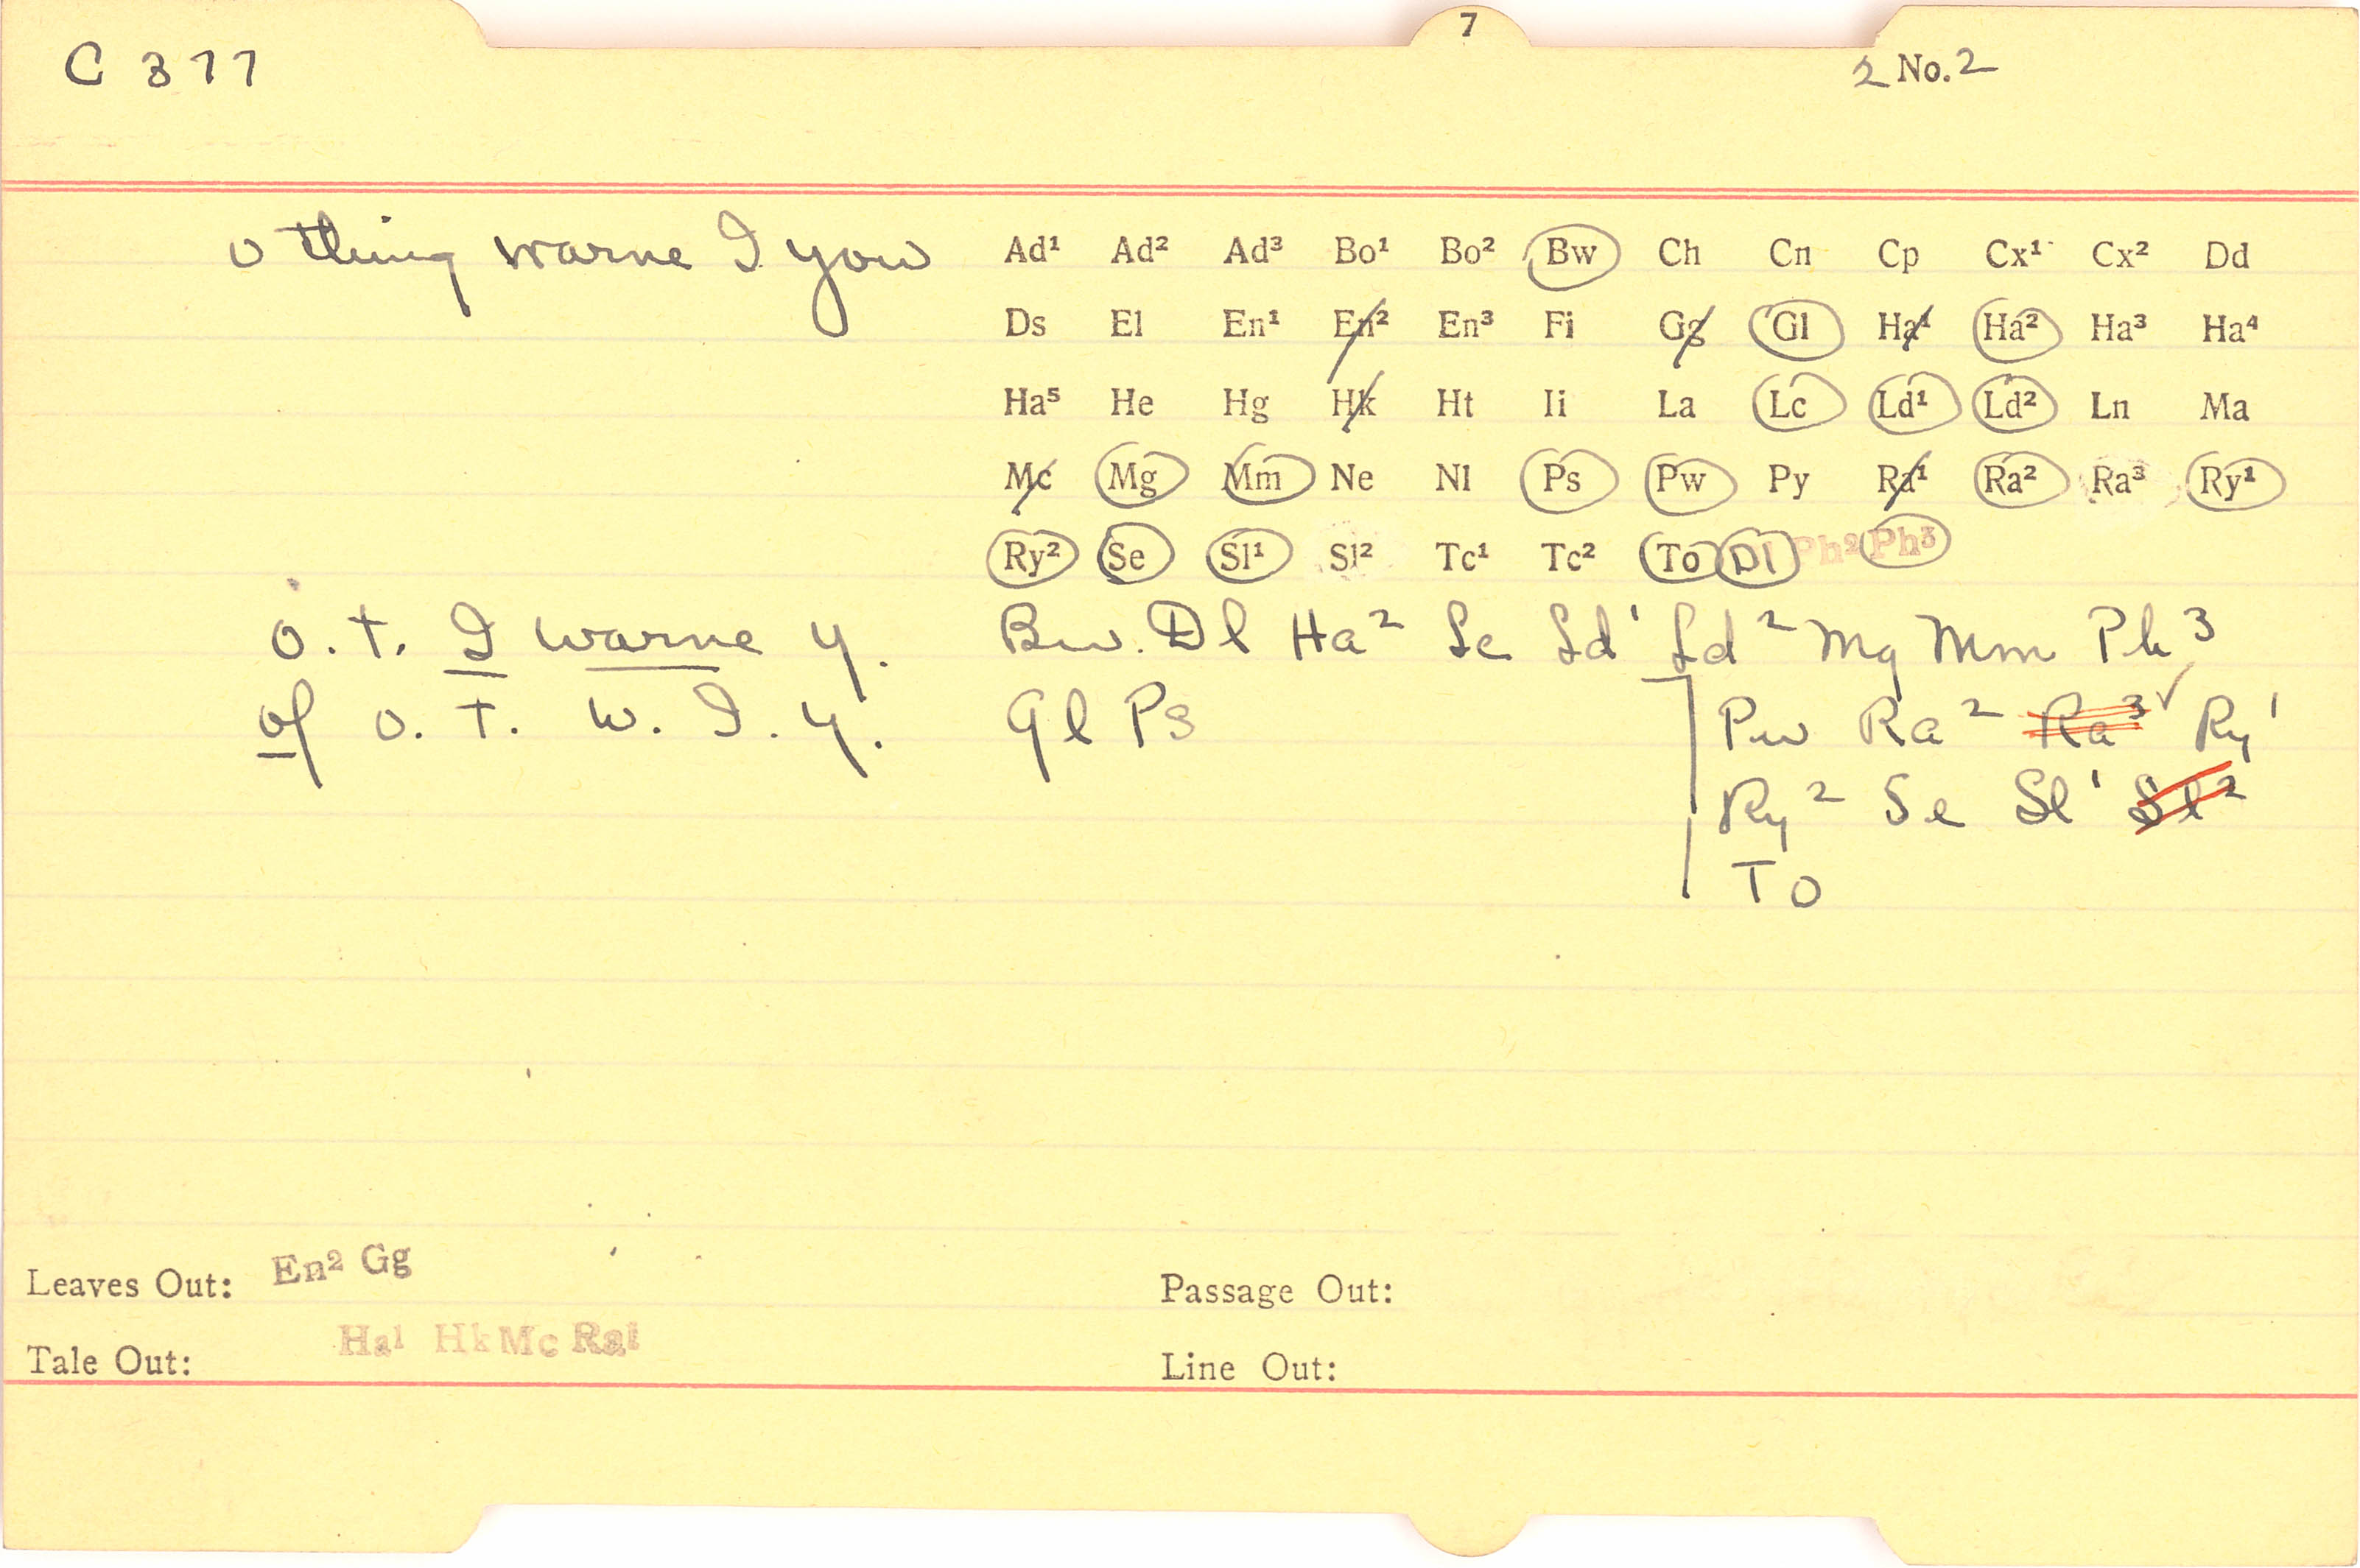 7
C 377
2 No. 2
o thing warne I yow
Ad¹ Ad² Ad³ Bo¹ Bo² Bw Ch Cn Cp Cx¹ Cx² Dd
Ds El En¹ En² En³ Fi Gg Gl Ha¹ Ha² Ha³ Ha⁴
Ha⁵ He Hg Hk Ht Ii La Lc Ld¹ Ld² Ln Ma
Mc Mg Mm Ne Nl Ps Pw Py Ra¹ Ra² Ra³ Ry¹
Ry² Se Sl¹ Sl² Tc¹ Tc² To Dl Ph² Ph³
o. t. I warne y. Bw. Dl Ha² Lc Ld¹ Ld² Mg Mm Ph³
of o. t. w. I. y. Gl Ps
Pw Ra² Ra³ Ry¹
Ry² Se Sl¹ Sl²
To
Leaves Out: En² Gg
Passage Out:
Tale Out: Ha¹ Hk Mc Ra¹
Line Out: